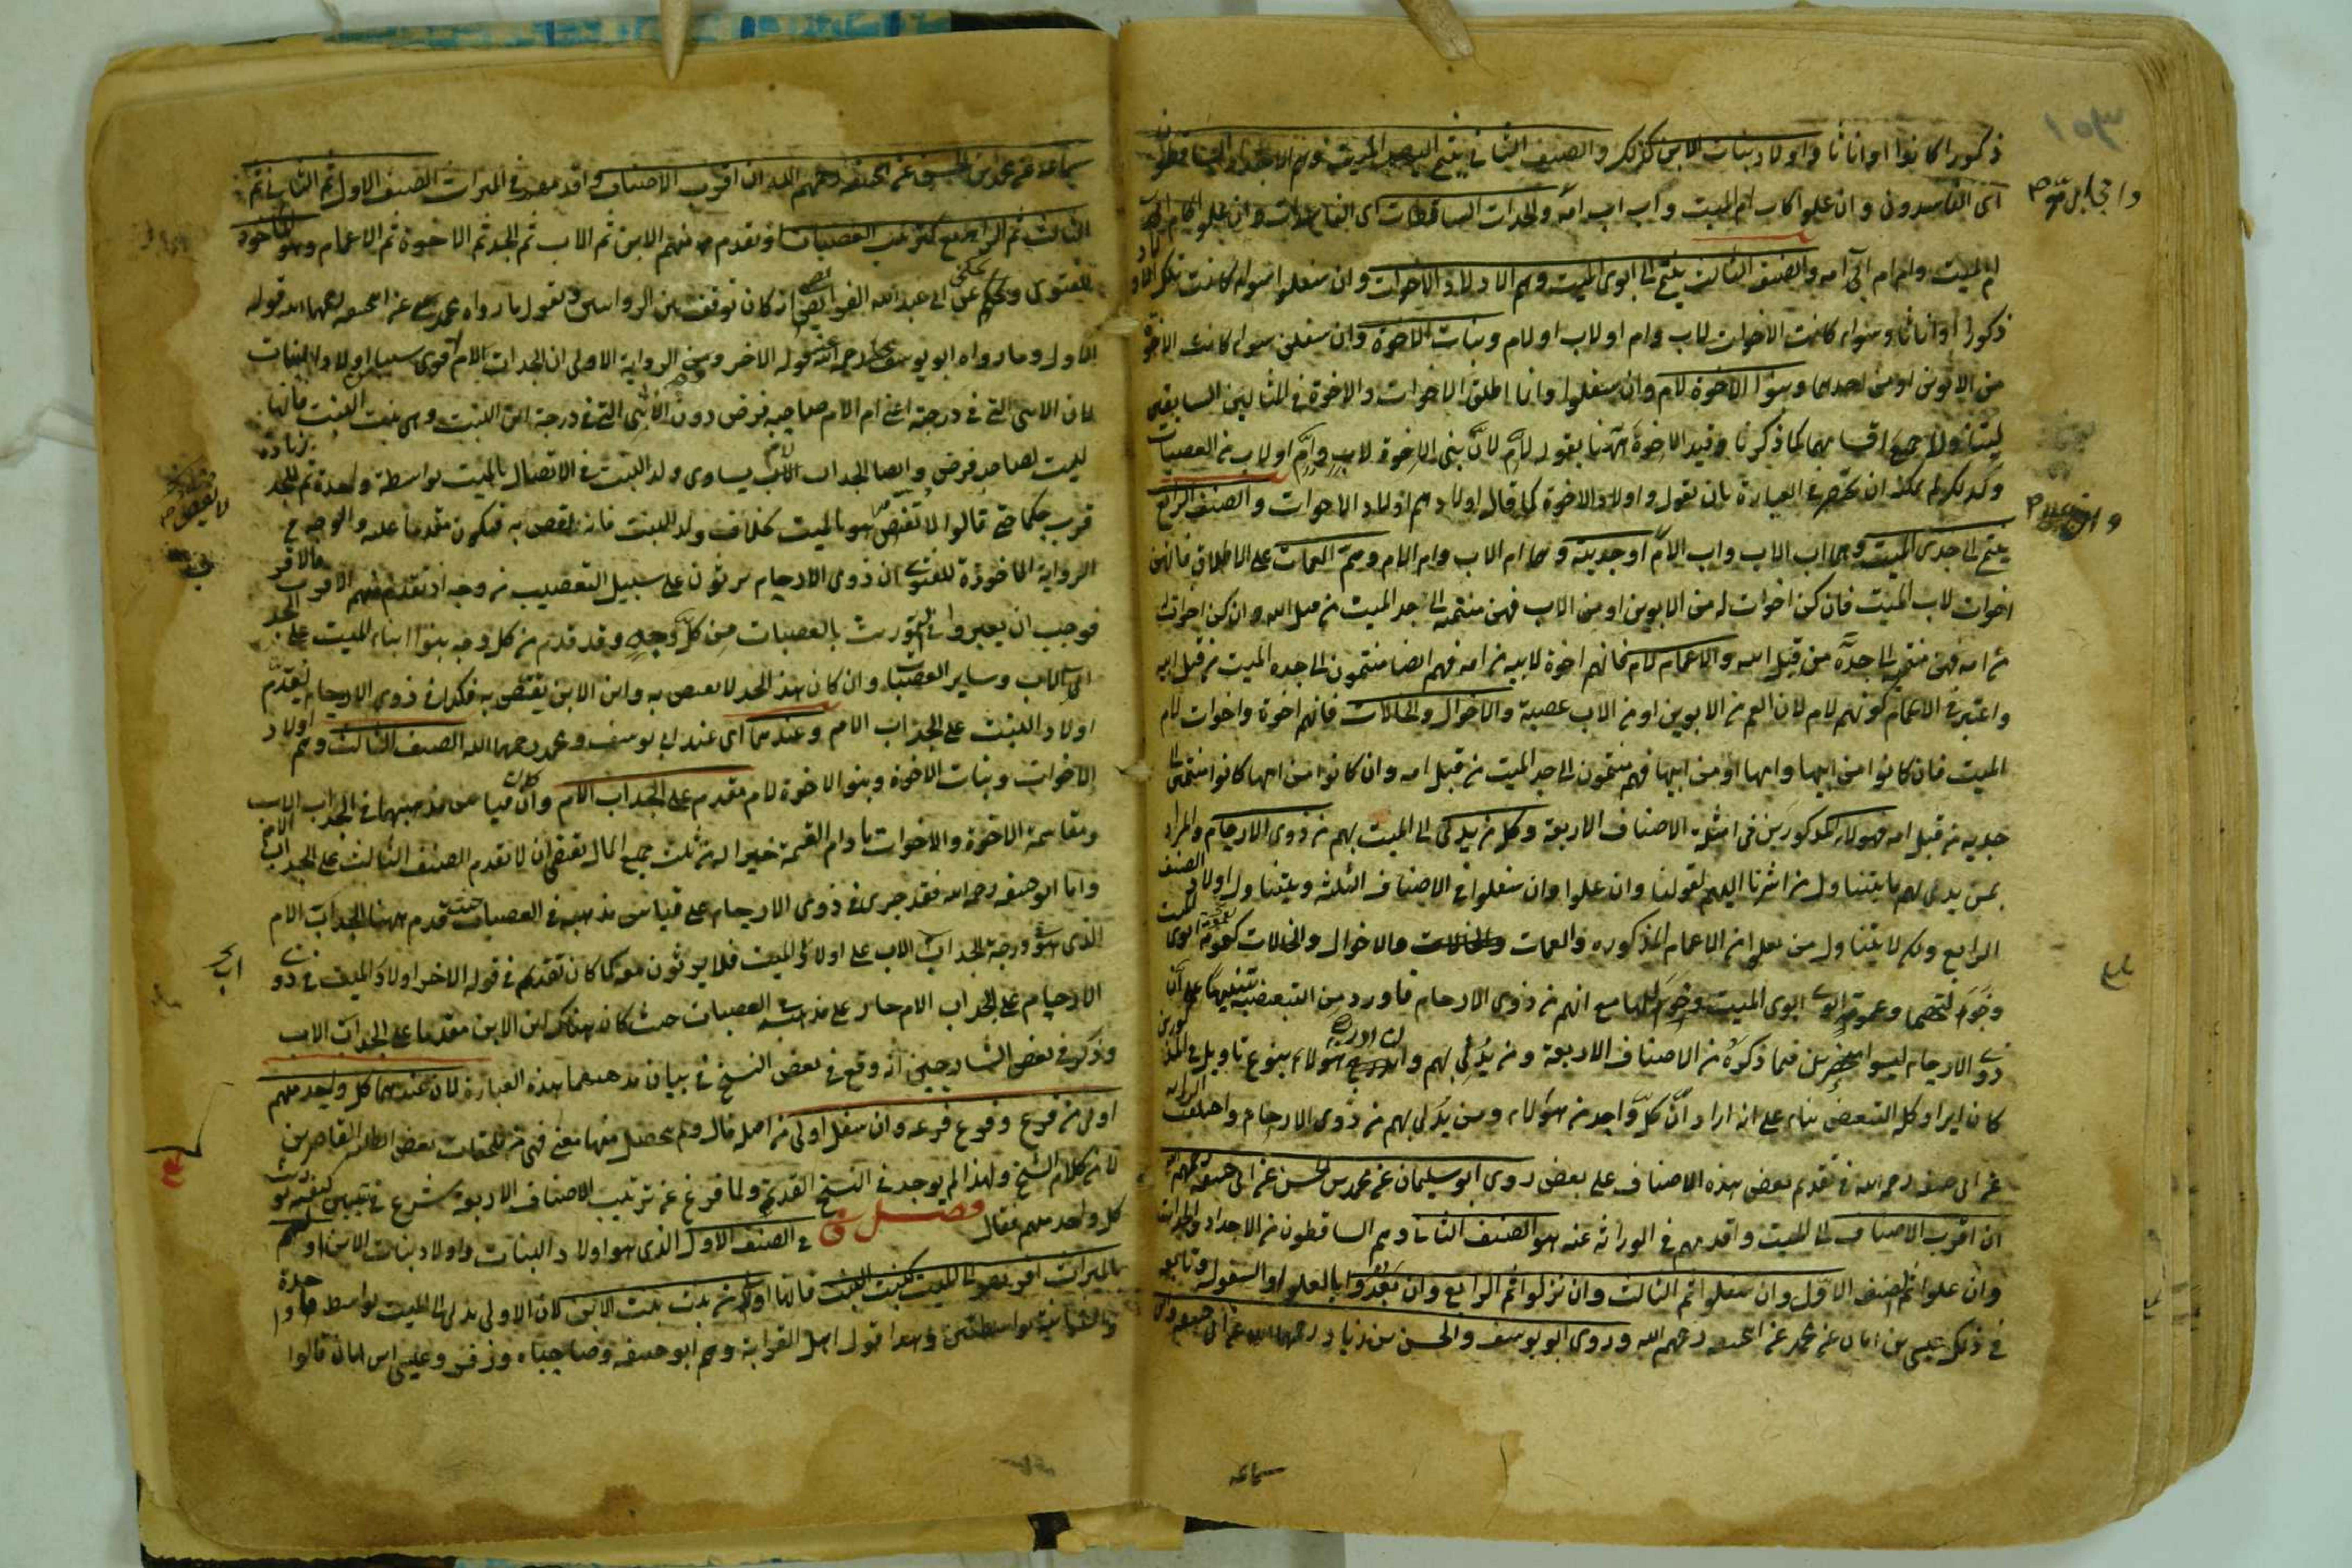 ذكورا كانوا او اناثا و اولاد بنات الابن كذلك والصنف الثاني ينتمي اليهم الميت وهم الاجداد الساقطون
اى الفاسدون وان علوا كاب ام الميت واب اب امه والجدات الساقطات اى الفاسدات وان علون كام اب
ام الميت وام ام اب امه والصنف الثالث ينتمي الى ابوى الميت وهم اولاد الاخوات وان سفلوا سواء كانت تلك الاولاد
ذكورا او اناثا وسواء كانت الاخوات لاب وام او لاب او لام وبنات الاخوة وان سفلن سواء كانت الاخوة
من الابوين او من احدهما وبنوا الاخوة لام وان سفلوا وانما اطلق الاخوات والاخوة في المثالين السابقين
ليتناول جميع اقسامهما كما ذكرنا وقيد الاخوة ههنا بقوله لام لان بنى الاخوة لاب وام او لاب من العصبات
وكذلك لم يمكنه ان يختصر في العبارة بان يقول واولاد الاخوة كما قال اولادهم اولاد الاخوات والصنف الرابع
ينتمي الى جدى الميت وهما اب الاب واب الام او جدتيه وهما ام الاب وام الام وهم العمات على الاطلاق فانهن
اخوات لاب الميت فان كن اخوات له من الابوين او من الاب فهن منتميه الى جد الميت من قبل ابيه وان كن اخواته
من امه فهن منتمية الى جدة من قبل ابيه والاعمام لام فانهم اخوة لابيه من امه فهم ايضا منتمون الى جدة الميت من قبل ابيه
واعتبر في الاعمام كونهم لام لان العم من الابوين او من الاب عصبة والاخوال والخالات فانهم اخوة واخوات لام
الميت فان كانوا من ابيها وامها او من ابيها فهم منتمون الى جد الميت من قبل امه وان كانوا من امها كانوا منتمين الى
جدته من قبل امه فهولاء المذكورين في امثلة الاصناف الاربعة وكل من يدلى الى الميت بهم من ذوى الارحام والمراد
بمن يدلى بهم ما يتناول من اشرنا اليهم بقولنا وان علوا وان سفلوا في الاصناف الثلثة ويتناول اولاد الصنف
الرابع ولم لا يتناول من يعلو من الاعمام المذكوره والعمات والاخوال والخالات كعمومة ابوى الميت
وخؤلتهما وعمومة ابوى ابوى الميت وخؤلتهما مع انهم من ذوى الارحام فاورد من التبعيضية تنبيها على ان
ذوى الارحام ليسوا منحصرين فيما ذكره من الاصناف الاربعة ومن يدلى بهم وان ادرج هولاء بنوع تاويل في المذكورين
كان ايراد كلمة التبعيض بناء على انه اراد ان كل واحد من هولاء ومن يدلى بهم من ذوى الارحام واختلفت الرواية
عن ابى حنيفه رحمه الله في تقديم بعض هذه الاصناف على بعض روى ابو سليمان عن محمد بن الحسن عن ابى حنيفة رحمهم الله
ان اقرب الاصناف الى الميت واقدمهم في الوراثه عنه هو الصنف الثانى وهم الساقطون من الاجداد والجدات
وان علوا ثم الصنف الاول وان سفلوا ثم الثالث وان نزلوا ثم الرابع وان بعدوا بالعلو او السفول وتابعه
في ذلك عيسى بن ابان عن محمد عن ابى حنيفه رحمهم الله وروى ابو يوسف والحسن بن زياد رحمهما الله عن ابى حنيفه وابن
سماعه
سماعه عن محمد بن الحسن عن ابى حنيفه رحمهم الله ان اقرب الاصناف واقدمهم في الميراث الصنف الاول ثم الثانى ثم
الثالث ثم الرابع كترتيب العصبات اذ يقدم منهم الابن ثم الاب ثم الجد ثم الاخوة ثم الاعمام وهو الماخوذ
للفتوى وحكى عن ابى عبد الله الفرايضى انه كان توفق بين الروايتين ويقول ما رواه محمد عن ابى حنيفه رحمهما الله قوله
الاول وما رواه ابو يوسف رحمه الله قوله الاخر وجه الرواية الاولى ان الجد اب الام اقوى سببا من اولاد البنات
لان الانثى التى في درجته اعنى ام الام صاحبة فرض دون الانثى التى في درجة ابن البنت وهى بنت البنت فانها
ليست بصاحبة فرض وايضا الجد اب الام يساوى ولد البنت في الاتصال بالميت بواسطة واحدة ثم للجد زيادة
قرب حكما حتى قالوا لا يقتص هو بالميت بخلاف ولد البنت فانه يقتص به فيكون مقدما عليه والوجه في
الرواية الماخوذة للفتوى ان ذوى الارحام يرثون على سبيل التعصيب من وجه اذ يقدم منهم الاقرب فالاقرب
فوجب ان يعتبروا في التوريث بالعصبات من كل وجه وقد قدم من كل وجه بنوا ابناء الميت على الجد
اب الاب وساير العصبات وان كان هذا الجد لا يقتص به وابن الابن يقتص به فكذا في ذوى الارحام يقدم
اولاد البنت على الجد اب الام وعندهما اى عند ابى يوسف ومحمد رحمهما الله الصنف الثالث وهم اولاد
الاخوات وبنات الاخوة وبنو الاخوة لام مقدم على الجد اب الام وان كان قياس مذهبهما في الجد اب الاب
ومقاسمة الاخوة والاخوات مادام القسمة خيرا له من ثلث جميع المال يقتضى ان لا يقدم الصنف الثالث على الجد اب الام
واما ابو حنيفه رحمه الله فقد جرى في ذوى الارحام على قياس مذهبه في العصبات حيث قدم ههنا الجد اب الام
الذى هو في درجة الجد اب الاب على اولاد الميت فلا يرثون معه كما كان تقديم في قوله الاخر اولاد الميت في ذوى
الارحام على الجد اب الام جار على مذهبه في العصبات حيث كان هناك ابن الابن مقدما على الجد اب الاب
وذكر في بعض الشارحين انه وقع في بعض النسخ في بيان مذهبهما هذه العبارة لان عندهما كل واحد منهم
اولى من فرعه وفرع فرعه وان سفل اولى من اصله قال ولم يحصل منها معنى فهى من ملحقات بعض الطلبه القاصرين
لا من كلام الشيخ ولهذا لم يوجد في النسخ القديم ولما فرغ عن ترتيب الاصناف الاربعة شرع في تبيين كيفية توريث
كل واحد منهم فقال فصل في الصنف الاول الذى هو اولاد البنات واولاد بنات الابن اولهم
بالميراث اقربهم الى الميت كبنت البنت فانها اولى من بنت بنت الابن لان الاولى يدلى الى الميت بواسطة واحدة
والثانية بواسطتين وهذا قول اهل القرابة وهم ابو حنيفه وصاحباه وزفر وعيسى ابن ابان قالوا